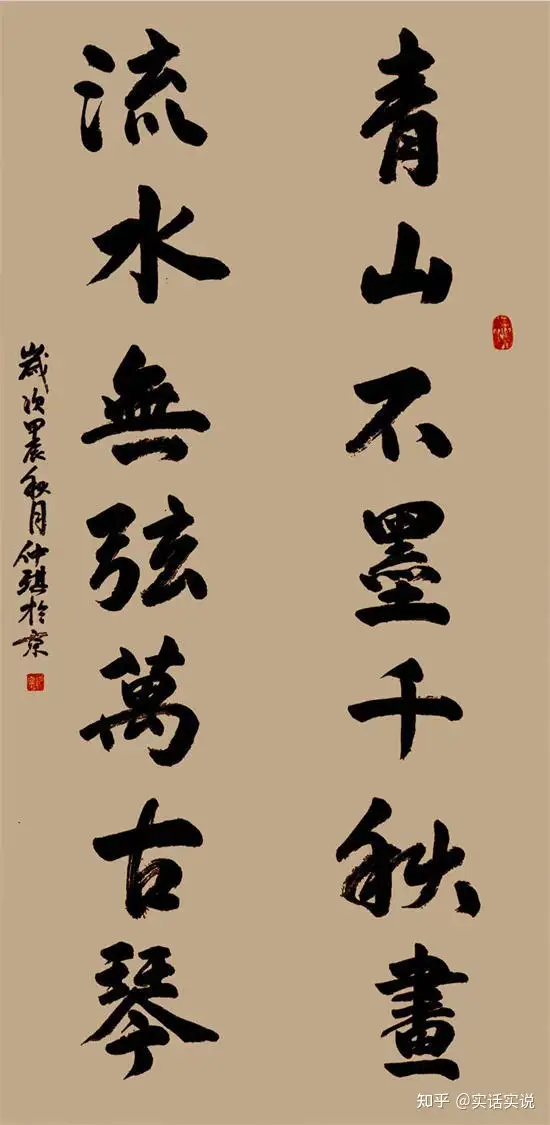 青山不墨千秋畫
流水無弦萬古琴
歲次甲辰秋月仲琪於京
知乎 @实话实说